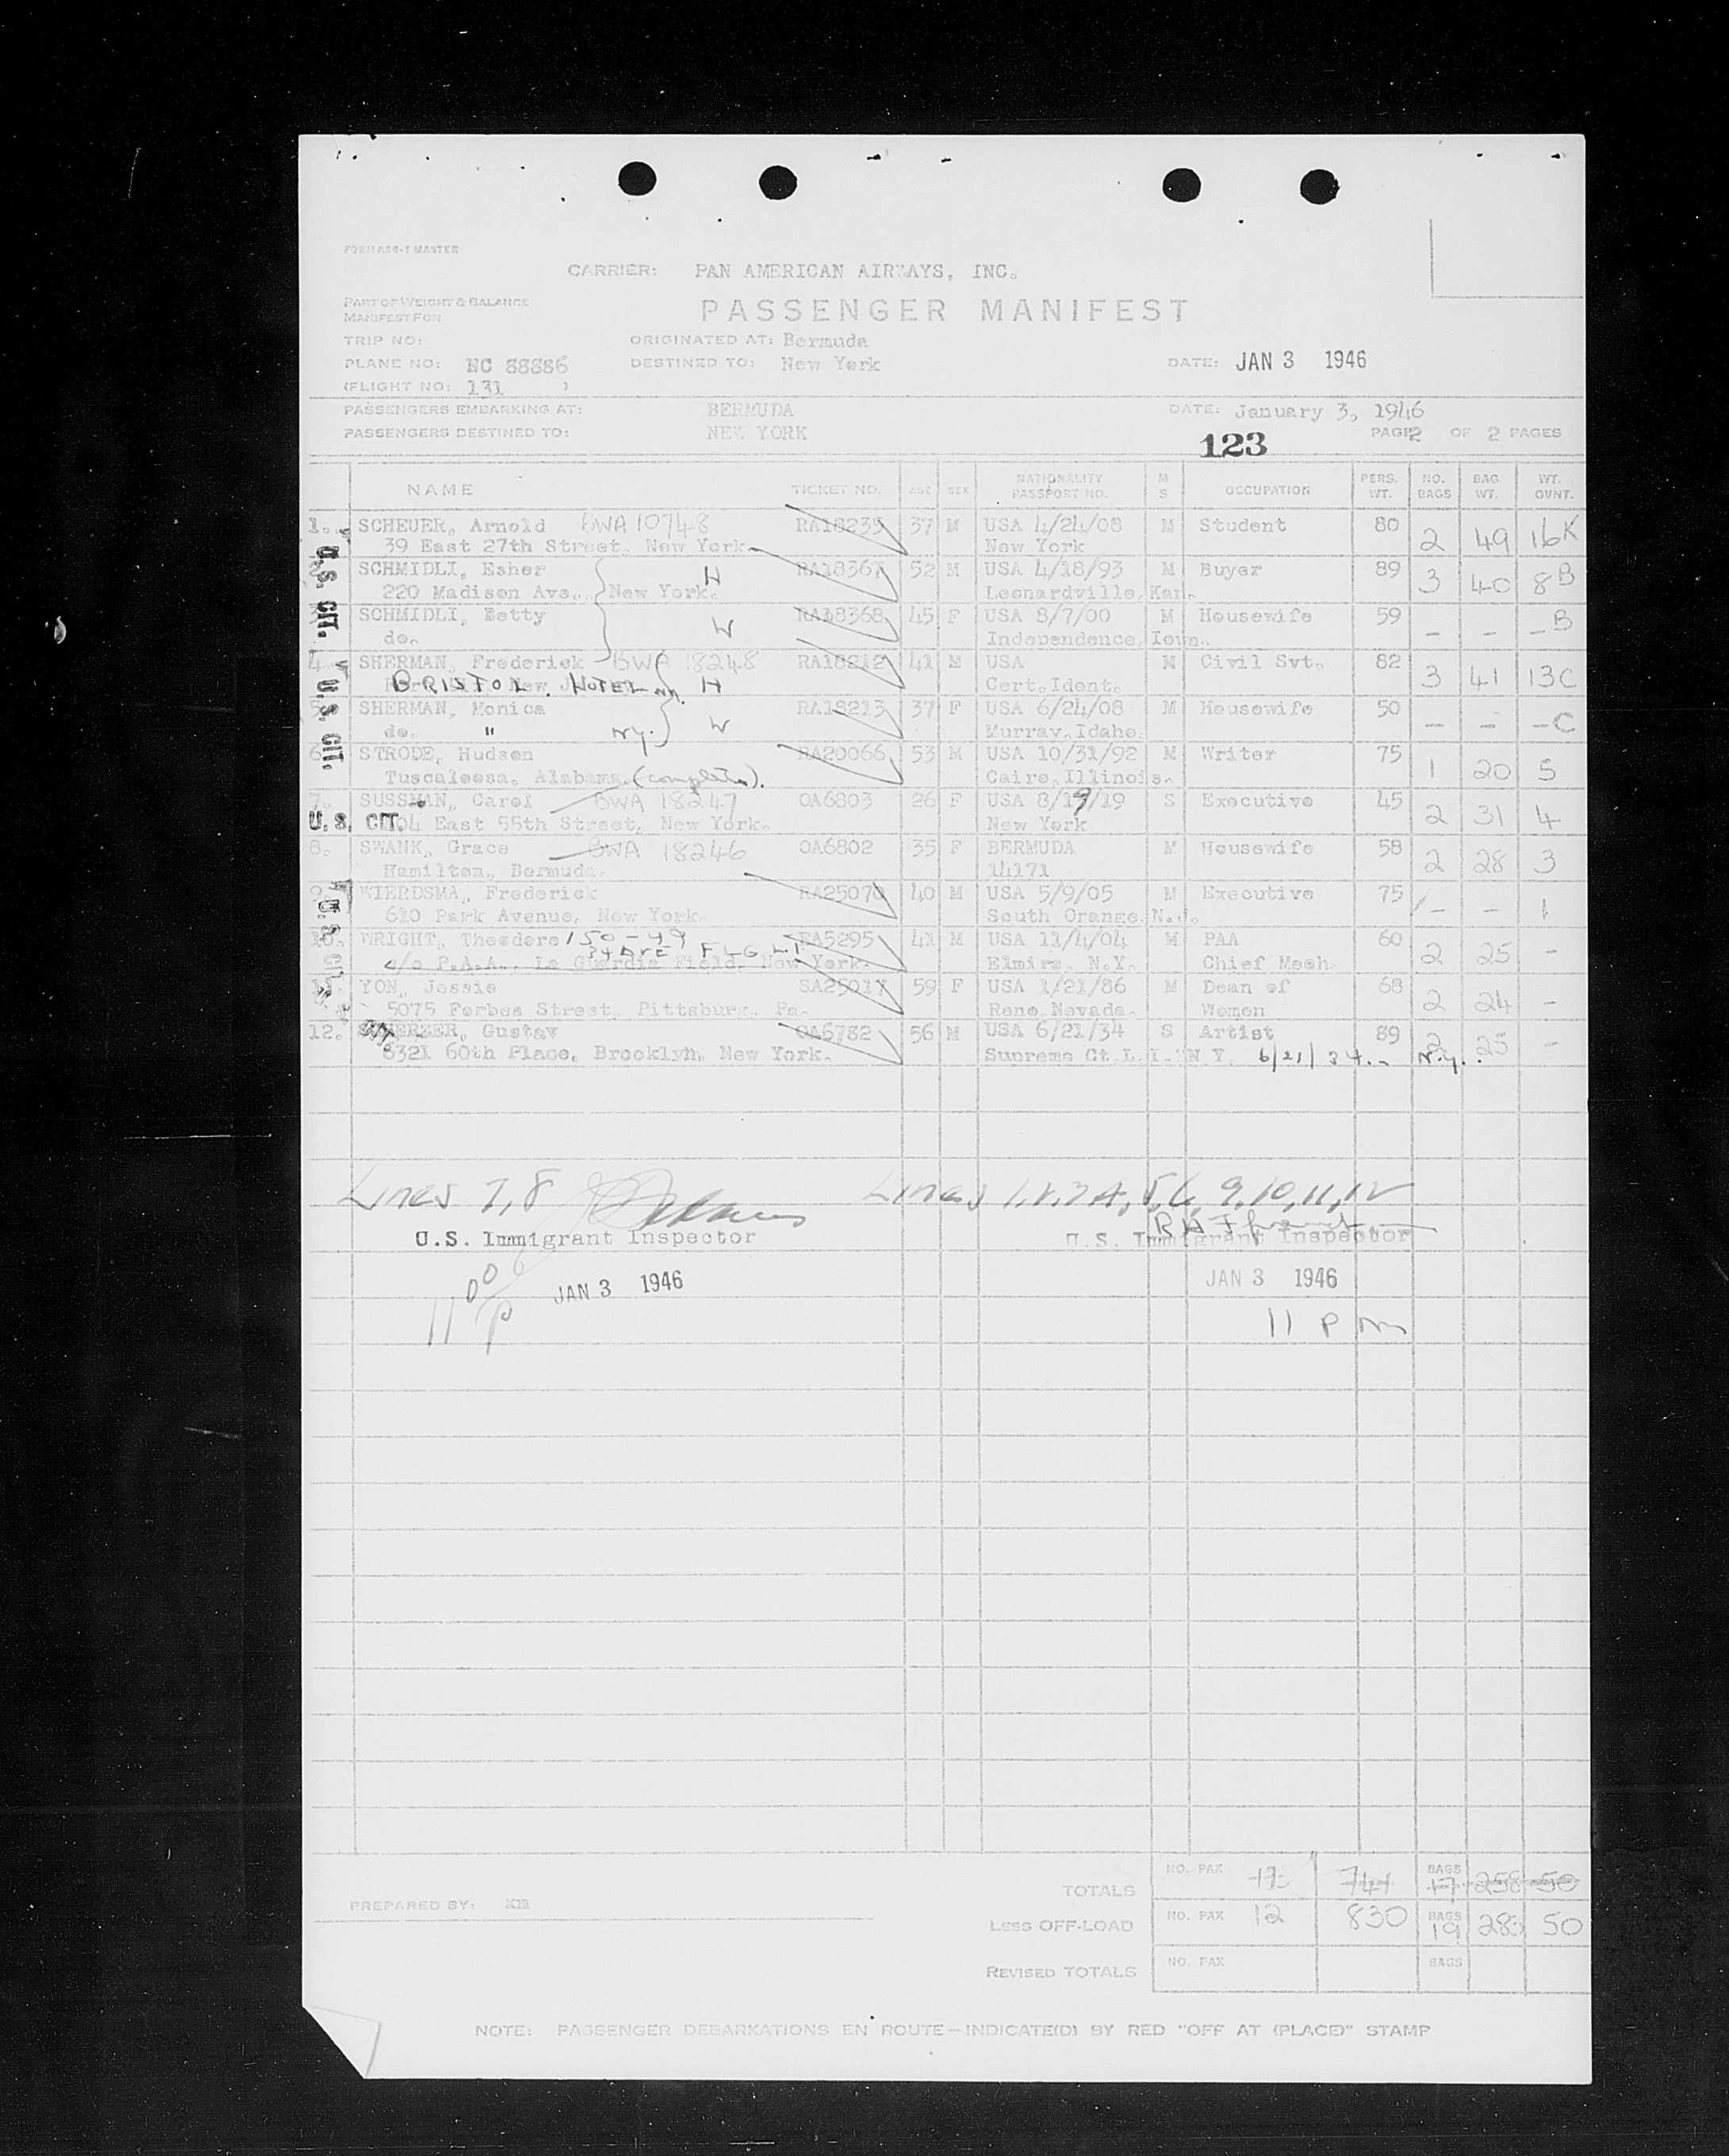 FORM A36-1 MASTER
CARRIER: PAN AMERICAN AIRWAYS, INC.
PART OF WEIGHT & BALANCE
MANIFEST FOR
PASSENGER MANIFEST
TRIP NO: ORIGINATED AT: Bermuda
PLANE NO: NC 88886 DESTINED TO: New York DATE: JAN 3 1946
(FLIGHT NO: 131 )
PASSENGERS EMBARKING AT: BERMUDA DATE: January 3, 1946
PASSENGERS DESTINED TO: NEW YORK PAGE 2 OF 2 PAGES
123
NAME TICKET NO. AGE SEX NATIONALITY PASSPORT NO. M S OCCUPATION PERS. WT. NO. BAGS BAG WT. WT. OVNT.
1. SCHEUER, Arnold BWA 10748 RA18235 37 M USA 4/24/08 M Student 80 2 49 16K
39 East 27th Street, New York. New York
SCHMIDLI, Esher H RA18367 52 M USA 4/18/93 M Buyer 89 3 40 8B
220 Madison Ave., New York. Leonardville, Kan.
SCHMIDLI, Betty W RA18368 45 F USA 8/7/00 M Housewife 59 - - - B
do. Independence, Iowa.
4. SHERMAN, Frederick BWA 18248 RA18212 41 M USA M Civil Svt. 82 3 41 13C
BRISTOL HOTEL H Cert. Ident.
5. SHERMAN, Monica RA18213 37 F USA 6/24/08 M Housewife 50 - - - C
do. " N.Y. W Murray, Idaho.
6. STRODE, Hudson RA20066 53 M USA 10/31/92 M Writer 75 1 20 5
Tuscaloosa, Alabama. (complete). Cairo, Illinois.
7. SUSSMAN, Carol BWA 18247 OA6803 26 F USA 8/19/19 S Executive 45 2 31 4
East 55th Street, New York. New York
8. SWANK, Grace BWA 18246 OA6802 35 F BERMUDA M Housewife 58 2 28 3
Hamilton, Bermuda. 14171
9. WIERDSMA, Frederick RA25070 40 M USA 5/9/05 M Executive 75 - - 1
610 Park Avenue, New York. South Orange, N.J.
10. WRIGHT, Theodore 150-49 RA5295 41 M USA 11/4/04 M PAA 60 2 25 -
34 AVE FLG L.I.
c/o P.A.A., La Guardia Field, New York. Elmira, N.Y. Chief Mech.
YON, Jessie SA25017 59 F USA 1/21/86 M Dean of 68 2 24 -
5075 Forbes Street, Pittsburg, Pa. Reno, Nevada. Women
12. Gustav OA6782 56 M USA 6/21/34 S Artist 89 2 25 -
8321 60th Place, Brooklyn, New York. Supreme Ct. L.I. N.Y. 6/21/34. - N.Y.
U.S. CIT.
U.S. CIT.
U.S. CIT.
U.S. CIT.
Lines 7, 8 Lines 1, 2, 3, 4, 5, 6, 9, 10, 11, 12
U.S. Immigrant Inspector U.S. Immigrant Inspector
JAN 3 1946 JAN 3 1946
11 00 P 11 P m
TOTALS NO. PAX 11 741 BAGS 17 258 50
PREPARED BY:
Less OFF-LOAD NO. PAX 12 830 BAGS 19 283 50
REVISED TOTALS NO. PAX BAGS
NOTE: PASSENGER DEBARKATIONS EN ROUTE—INDICATE(D) BY RED "OFF AT (PLACE)" STAMP